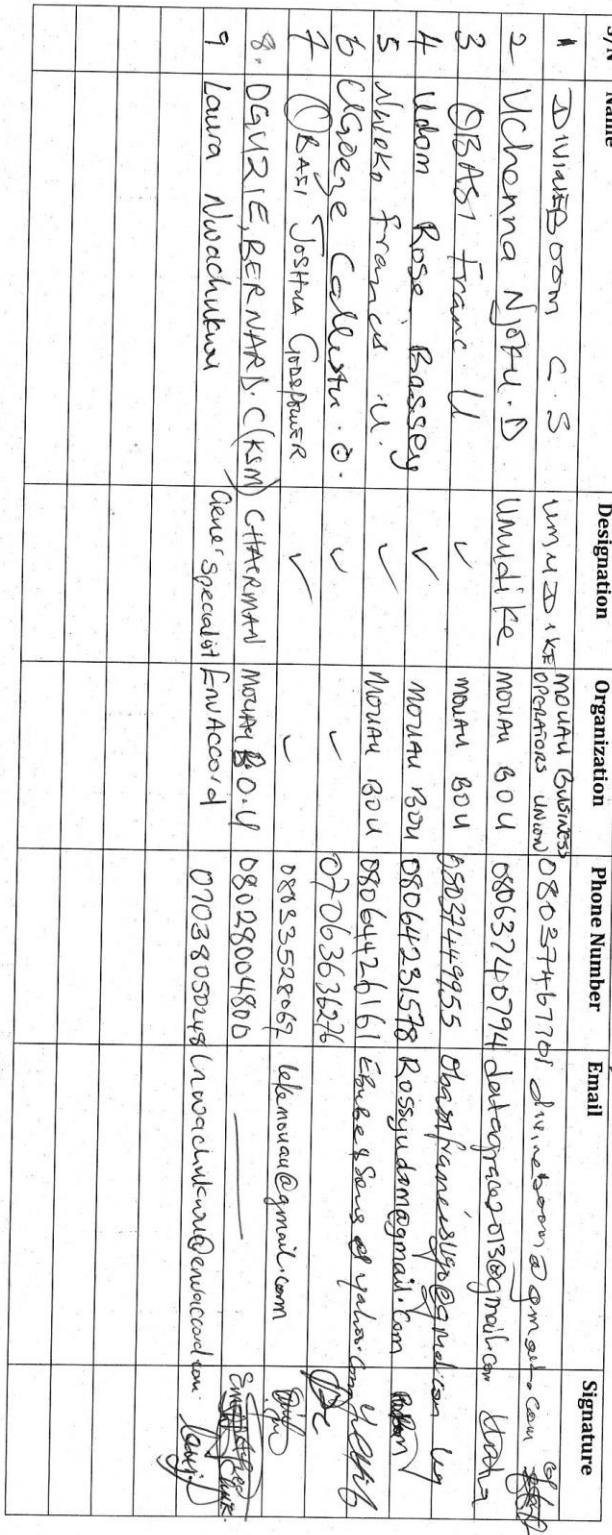 S/N Name Designation Organization Phone Number Email Signature
1 DIVINEBOOM C.S UMUDIKE MOUAU BUSINESS OPERATORS UNION 08037467701 divineboom@gmail.com
2 Uchenna Njoku.D Umudike MOUAU BOU 08063740794 datagrace2013@gmail.com
3 OBASI Franc U ✓ MOUAU BOU 08037449955
4 Udom Rose Bassey ✓ MOUAU BOU 08064231578 Rossyudom@gmail.com
5 Nweko Francis .U. ✓ MOUAU BOU 08064426161
6 Ugoeze Callista .O. ✓ ✓ 07063636276
7 OBASI JOSHUA GODSPOWER ✓ ✓ 08033528069 lekemouau@gmail.com
8. OGUZIE, BERNARD.C (KSM) CHAIRMAN MOUAU B.O.U 08028004800
9 Laura Nwachukwu Gene' Specialist EnvAccord 07038050248 lnwachukwu@envaccord.com